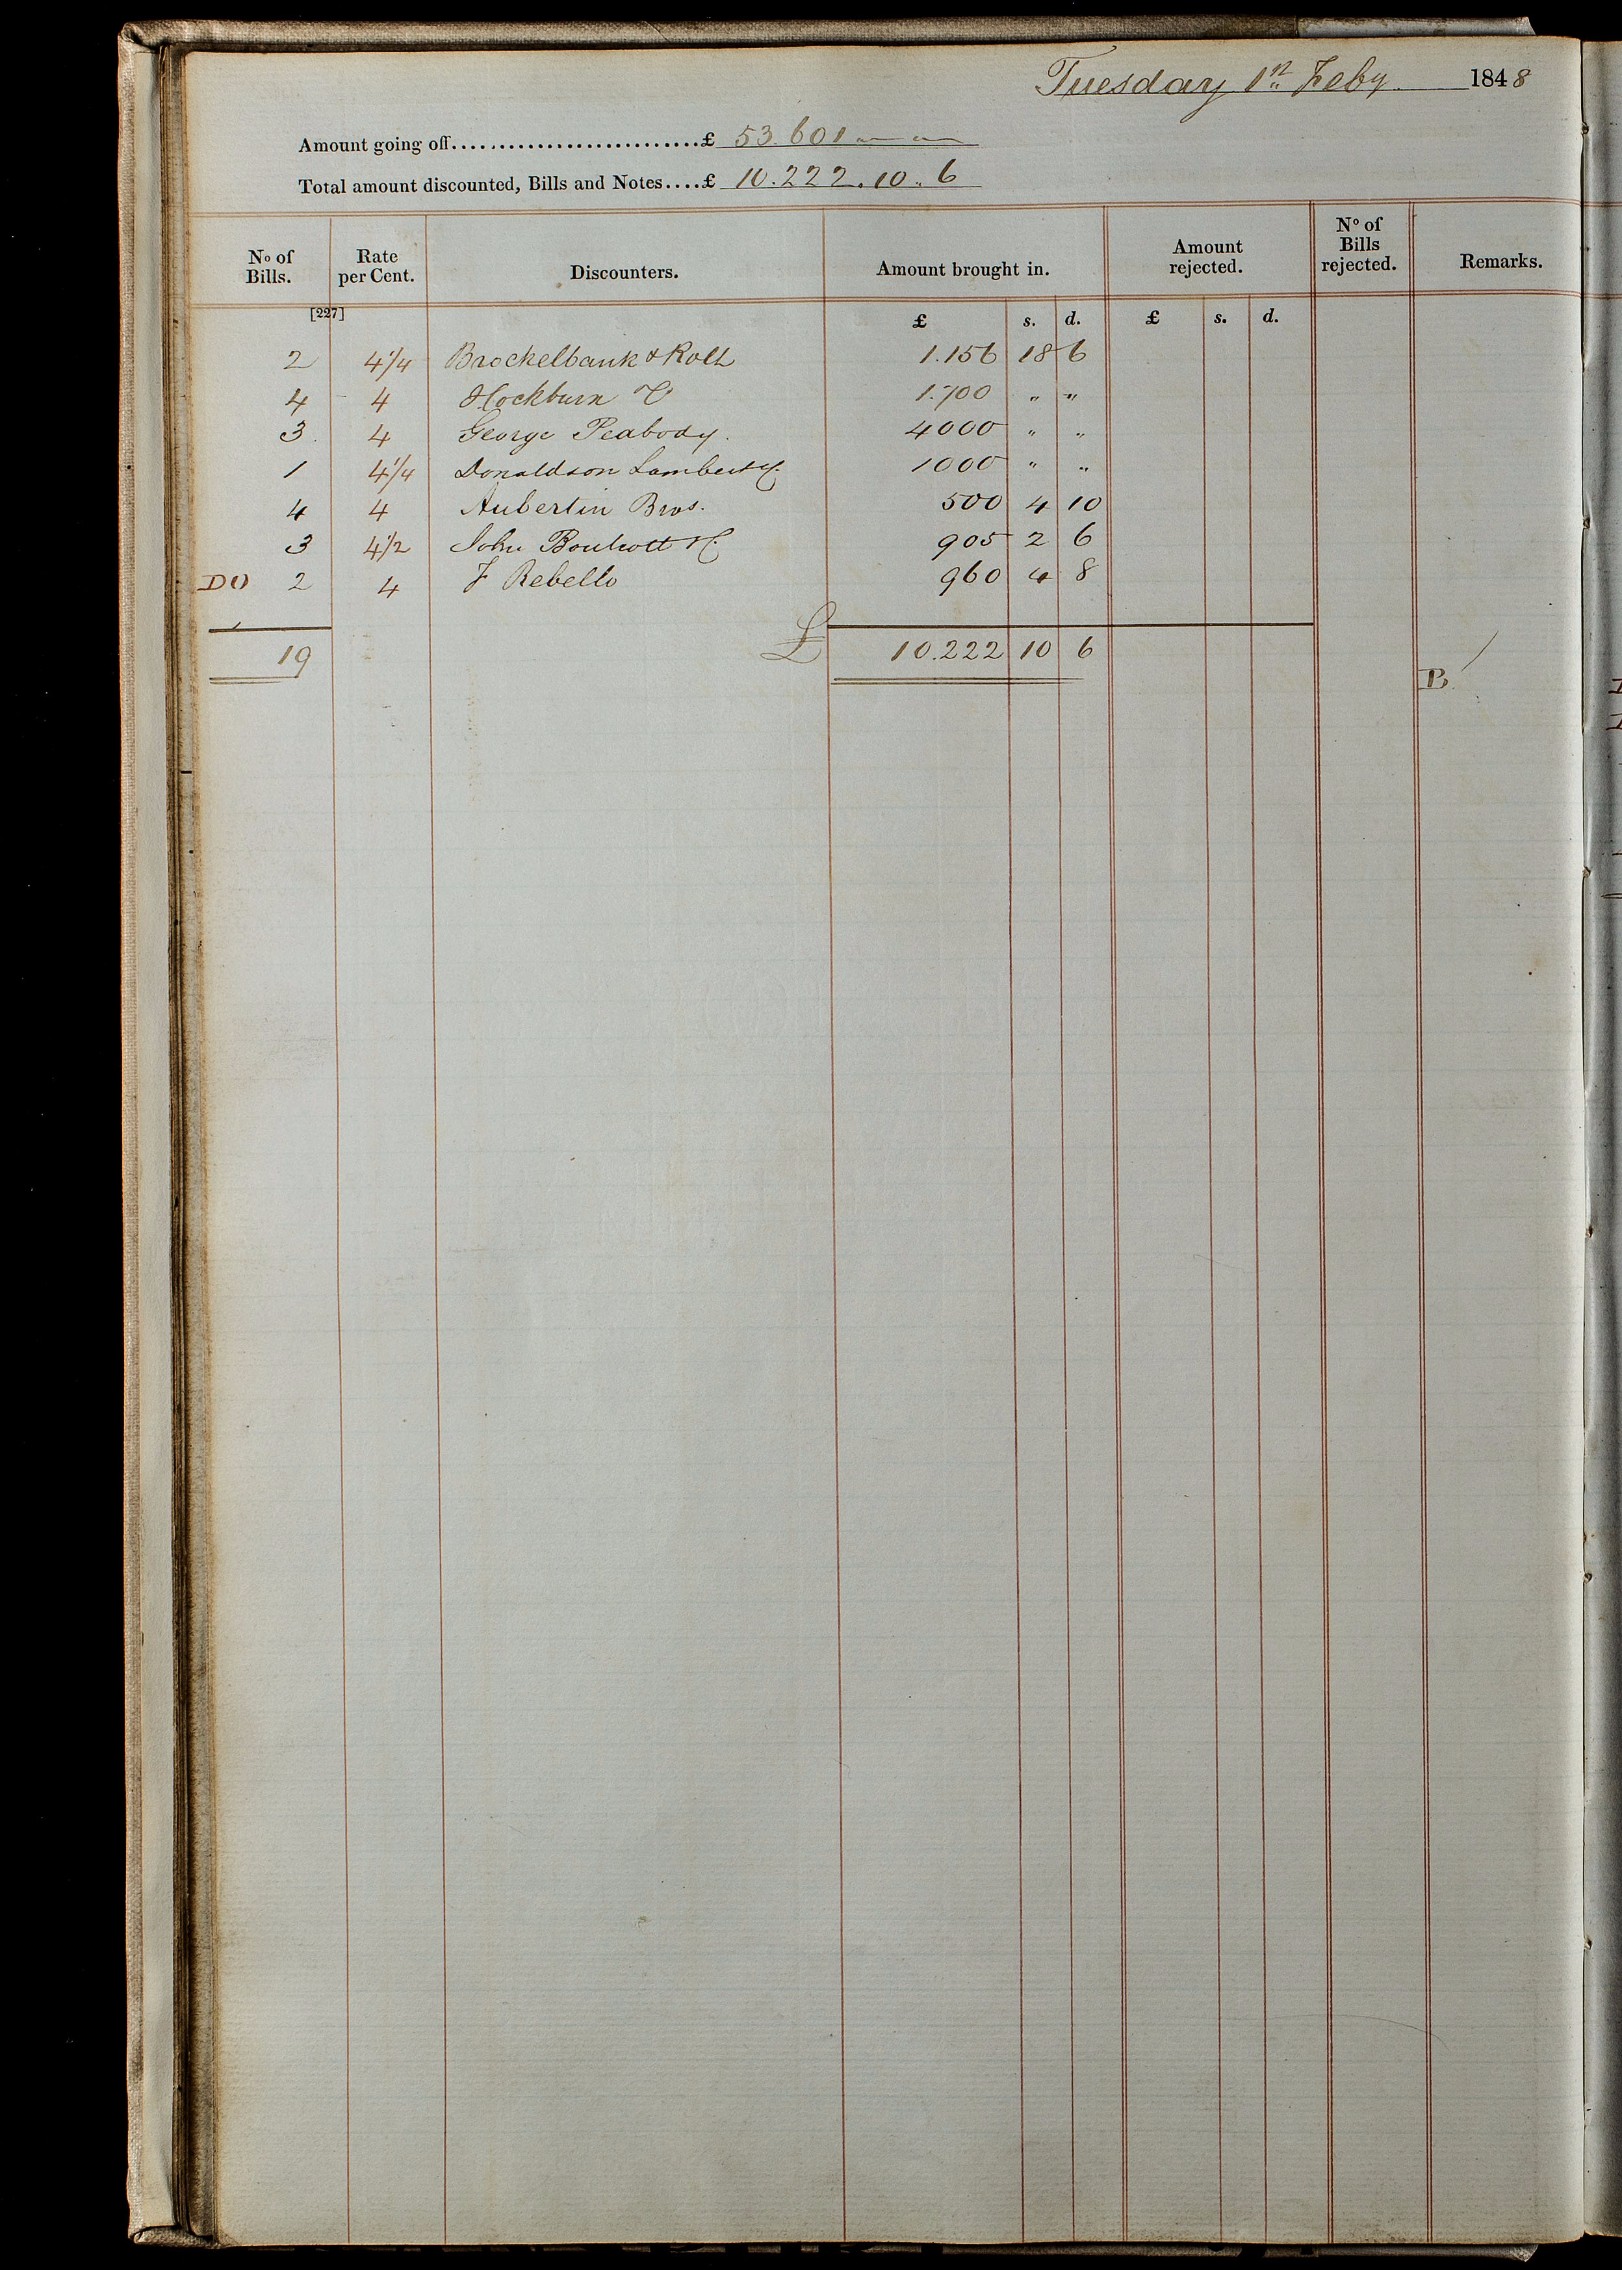 Tuesday 1st Feby 1848
Amount going off..........................£ 53.601 — —
Total amount discounted, Bills and Notes....£ 10.222.10.6
No of Bills. Rate per Cent. Discounters. Amount brought in. Amount rejected. No of Bills rejected. Remarks.
[227] £ s. d. £ s. d.
2 4 1/4 Brockelbank & Rolls 1.156 18 6
4 4 Hockburn 1.700 " "
3 4 George Peabody. 4000 " "
1 4 1/4 Donaldson Lambert & C. 1000 " "
4 4 Aubertin Bros. 500 4 10
3 4 1/2 John Boulcott 905 2 6
DO 2 4 J Rebello 960 4 8
19 £ 10.222 10 6
B